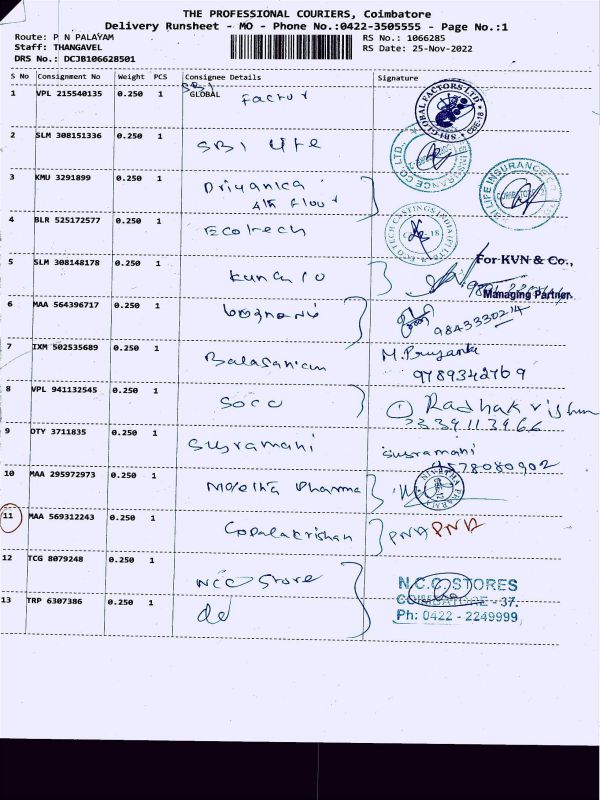 THE PROFESSIONAL COURIERS, Coimbatore
Delivery Runsheet - MO - Phone No.:0422-3505555 - Page No.:1
Route: P N PALAYAM RS No.: 1066285
Staff: THANGAVEL RS Date: 25-Nov-2022
DRS No.: DCJB106628501
S No Consignment No Weight PCS Consignee Details Signature
SBI
1 VPL 215540135 0.250 1 GLOBAL Factor
SBI GLOBAL FACTORS LTD CBE-18
2 SLM 308151336 0.250 1 SBI Life
INSURANCE CO. LTD.
SBI LIFE INSURANCE COIMBATORE
3 KMU 3291899 0.250 1 Priyanka
4 BLR 525172577 0.250 1 Ecotech
ECOTECH CASTINGS INDIA (P) LTD
5 SLM 308148178 0.250 1 For KVN & Co.,
Managing Partner
6 MAA 564396717 0.250 1 9843330214
7 IXM 502535689 0.250 1 M. Priyanka
9789342769
8 VPL 941132545 0.250 1 SOCO Radhakrishnan
9 DTY 3711835 0.250 1 Susramani susramani
9578080902
10 MAA 295972973 0.250 1 Pharma
11 MAA 569312243 0.250 1 Gopalakrishan PNA PNA
12 TCG 8079248 0.250 1 NCC Store N.C.C. STORES
COIMBATORE - 37.
13 TRP 6307386 0.250 1 do Ph: 0422 - 2249999